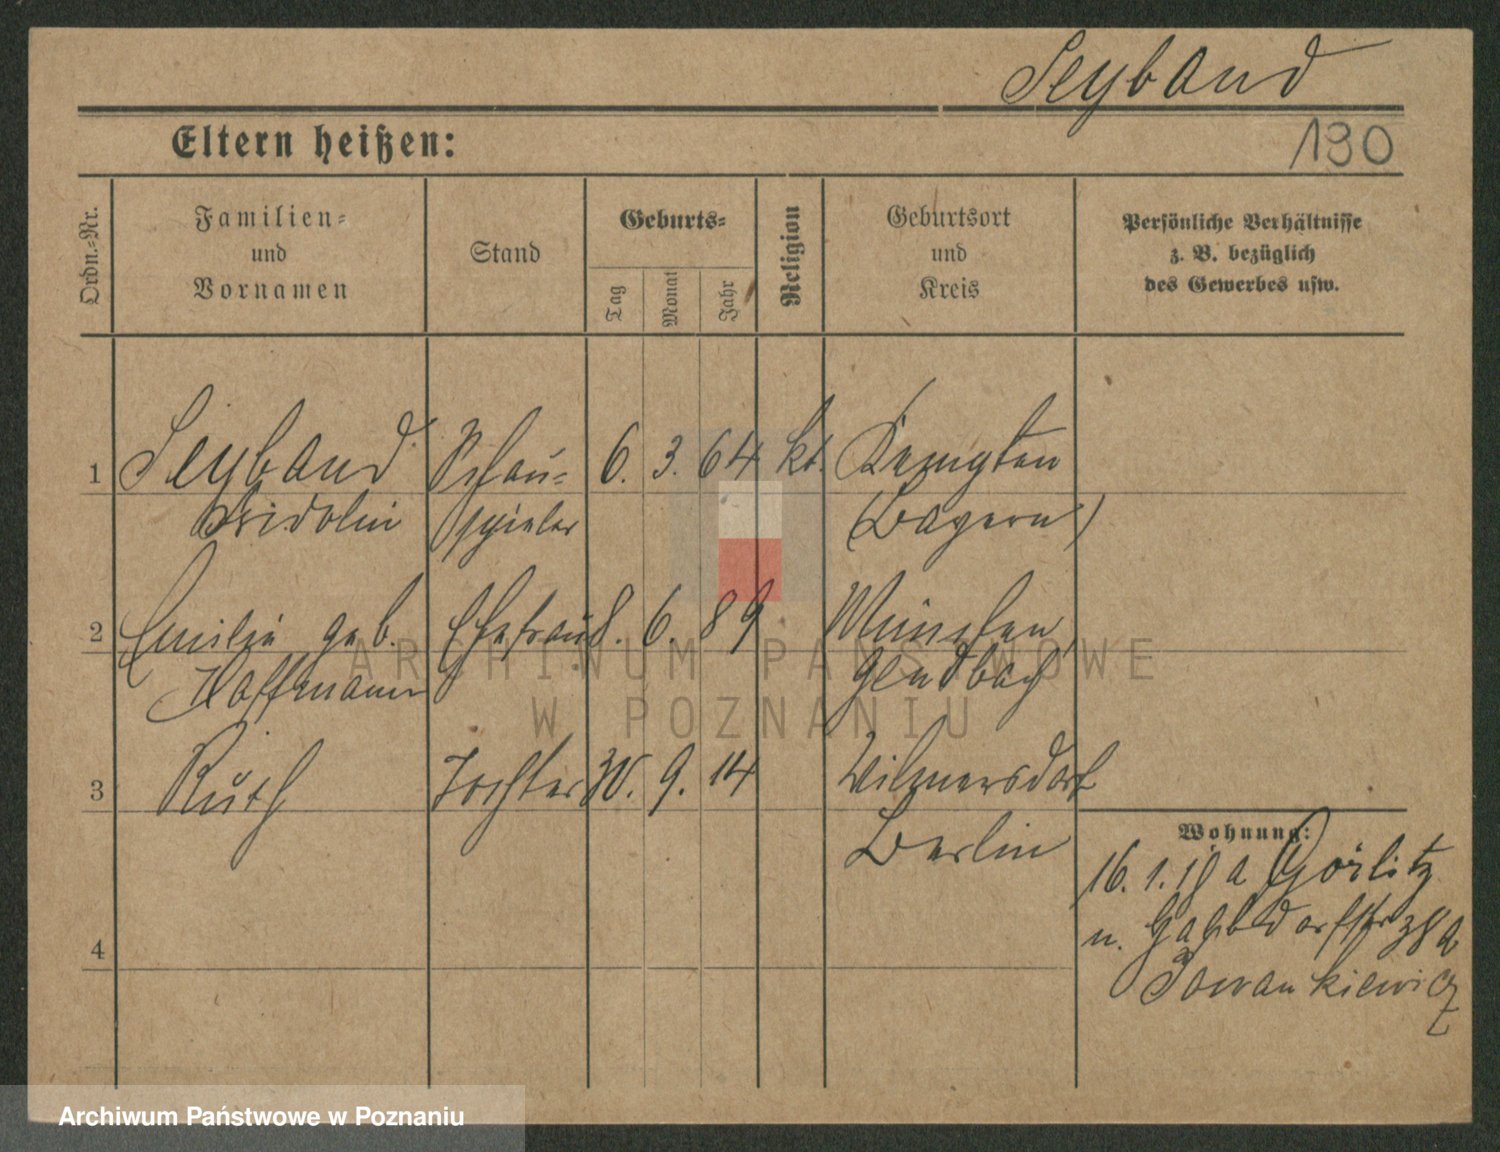 Seyband
190
Eltern heißen:
Ordn.-Nr.
Familien-
und
Vornamen
Stand
Geburts-
Tag
Monat
Jahr
Religion
Geburtsort
und
Kreis
Persönliche Verhältnisse
z. B. bezüglich
des Gewerbes usw.
1 Seyband Schau- 6. 3. 64 kt. Kempten
Fridolin spieler (Bayern)
2 Emilie geb. Ehefrau 8. 6. 89 München
Hoffmann Gladbach
3 Ruth Tochter 30. 9. 14 Wilmersdorf
Berlin
Wohnung:
16. 1. 19 a Görlitz
n. 38a
4
ARCHIWUM PAŃSTWOWE
W POZNANIU
Archiwum Państwowe w Poznaniu